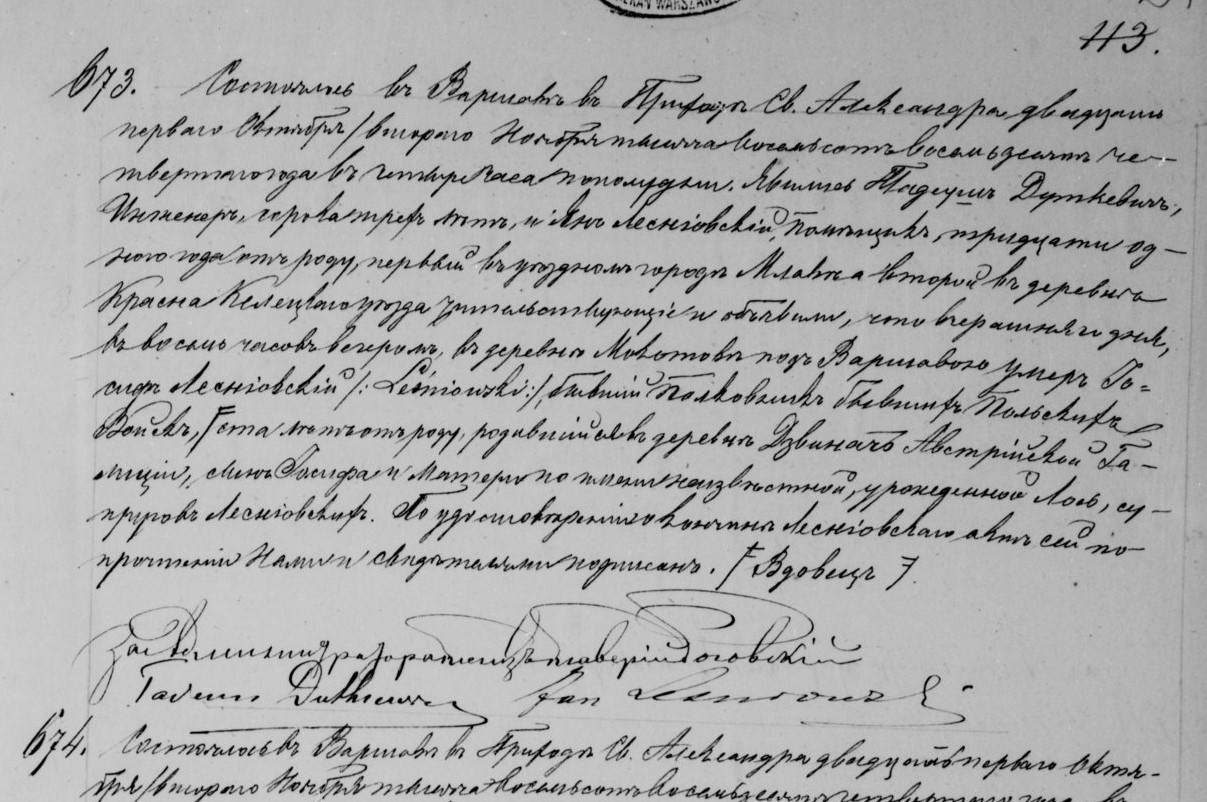 113.
673. Состоялось въ Варшавѣ въ Приходѣ Св. Александра двадцать
перваго Октября / втораго Ноября тысяча восемьсотъ восемьдесятъ че-
твертаго года въ четыре часа пополудни. Явились Тадеушъ Дуткевичъ,
Инженеръ, сорока трехъ лѣтъ, и Янъ Лесніовскій, Помѣщикъ, тридцати од-
ного года отъ роду, первый въ уѣздномъ городѣ Млавѣ а второй въ деревнѣ
Красна Келецкаго уѣзда жительствующіе и объявили, что вчерашняго дня,
въ восемь часовъ вечеромъ, въ деревнѣ Мокотовѣ подъ Варшавою умеръ Іо-
сифъ Лесніовскій /: Leśniowski :/, бывшій Полковникъ бывшихъ Польскихъ
Войскъ, ста лѣтъ отъ роду, родившійся въ деревнѣ Дзвинячъ Австрійской Га-
лиціи, сынъ Іосифа и Матери по имени неизвѣстной, урожденной Лось, су-
пруговъ Лесніовскихъ. По удостовѣреніи о кончинѣ Лесніовскаго актъ сей по
прочтеніи Нами и свидѣтелями подписанъ. / Вдовецъ
Jan
674. Состоялось въ Варшавѣ въ Приходѣ Св. Александра двадцать перваго Октя-
бря / втораго Ноября тысяча восемьсотъ восемьдесятъ четвертаго года въ